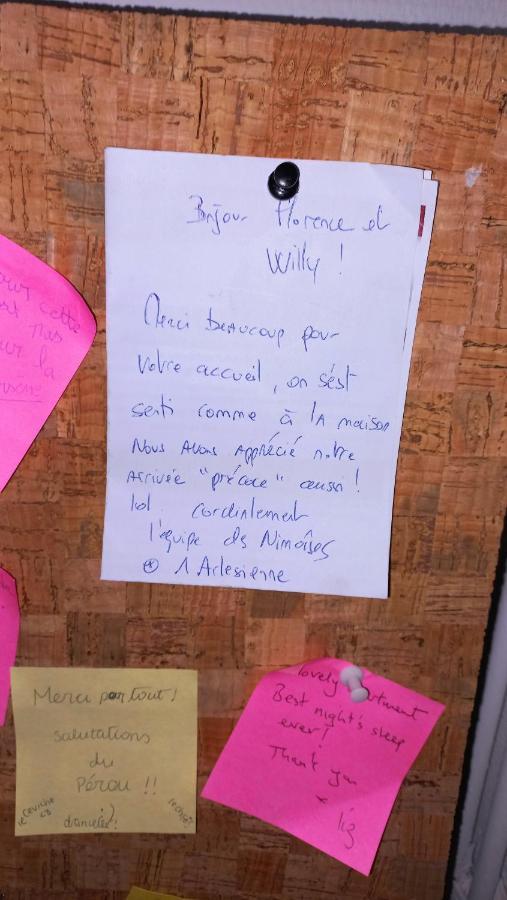 Bonjour Florence et
Willy !
Merci beaucoup pour
votre accueil, on s'est
senti comme à la maison
Nous avons apprécié notre
arrivée "précoce" aussi !
lol. cordialement
l'équipe des Nimoîses
⊕ 1 Arlesienne
cette
pas
la
Merci par tout !
salutations
du
Pérou !!
le ceviche
lovely
Best night's sleep
ever!
Thank you
x liz